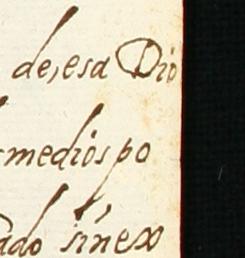 de, esa Dio
medios po
ado sinex